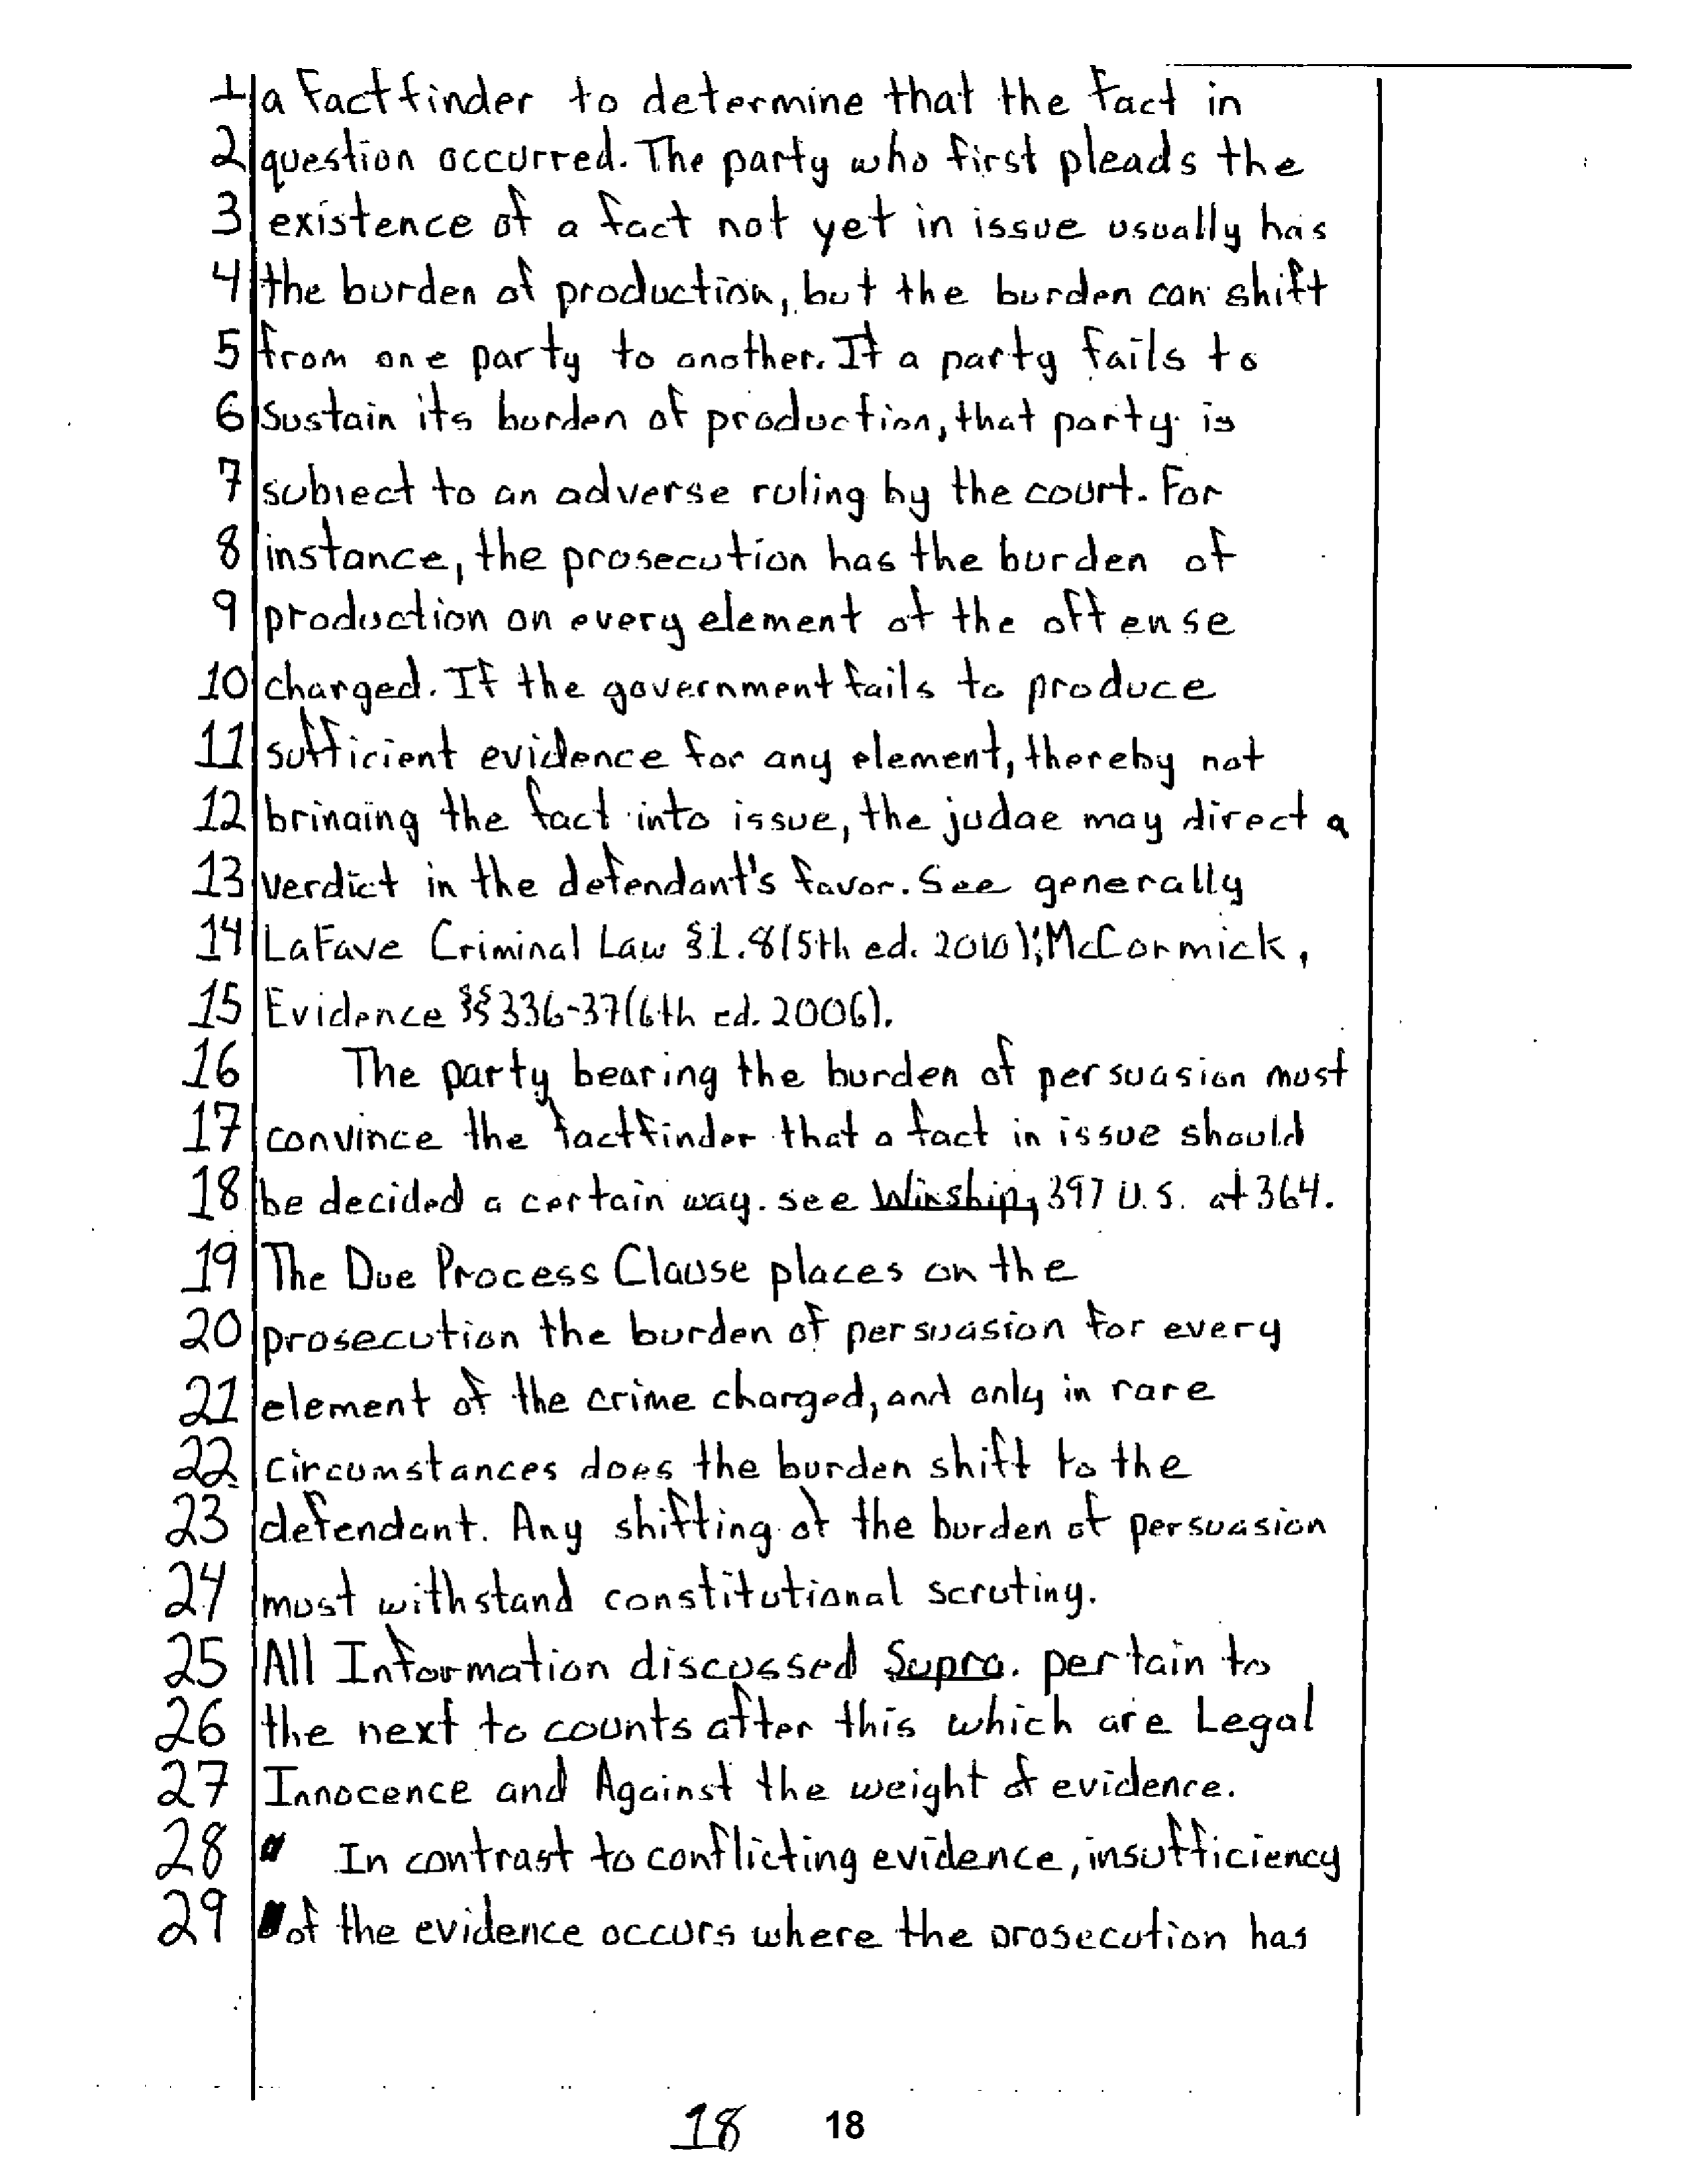 1 a factfinder to determine that the fact in
2 question occurred. The party who first pleads the
3 existence of a fact not yet in issue usually has
4 the burden of production, but the burden can shift
5 from one party to another. If a party fails to
6 Sustain its burden of production, that party is
7 subject to an adverse ruling by the court. For
8 instance, the prosecution has the burden of
9 production on every element of the offense
10 charged. If the government fails to produce
11 sufficient evidence for any element, thereby not
12 bringing the fact into issue, the judge may direct a
13 verdict in the defendant's favor. See generally
14 LaFave Criminal Law §1.8(5th ed. 2010); McCormick,
15 Evidence §§336-37(6th ed. 2006).
16 The party bearing the burden of persuasion must
17 convince the factfinder that a fact in issue should
18 be decided a certain way. see Winship, 397 U.S. at 364.
19 The Due Process Clause places on the
20 prosecution the burden of persuasion for every
21 element of the crime charged, and only in rare
22 circumstances does the burden shift to the
23 defendant. Any shifting of the burden of persuasion
24 must withstand constitutional scrutiny.
25 All Information discussed Supra. pertain to
26 the next to counts after this which are Legal
27 Innocence and Against the weight of evidence.
28 " In contrast to conflicting evidence, insufficiency
29 of the evidence occurs where the prosecution has
18 18